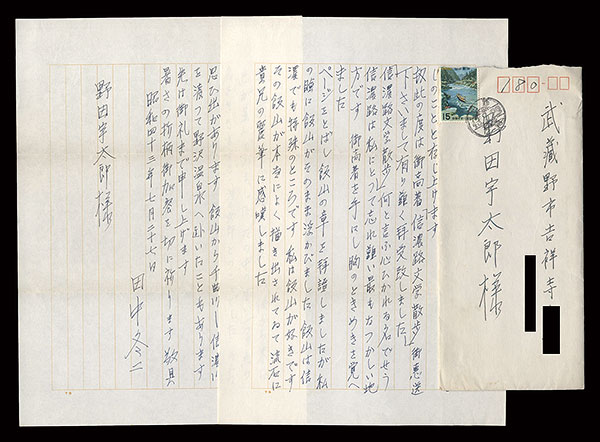 じのことと存じ上げます
扨此の度は御高著「信濃路文学散歩」御恵送
下さいまして有り難く拝受致しました
信濃路文学散歩 何と言ふ心ひかれる名でせう
信濃路は私にとつて忘れ難い最もなつかしい地
方です 御高著を手にし胸のときめきを覚へ
ました
ページをとばし飯山の章を拝読しましたが私
の瞼に飯山がそのまま浮かびました 飯山は信
濃でも特殊のところです 私は飯山が好きです
その飯山が本当によく描き出されてゐて流石に
貴兄の麗筆に感嘆しました
思ひ出があります 飯山から千曲川
を渡つて野沢温泉へ赴いたこともあります
先は御礼まで申し上げます
暑さの折柄御加養を切に祈ります 敬具
昭和四十三年七月二十七日
田中冬二
野田宇太郎様
180
15
武蔵野市吉祥寺
野田宇太郎様